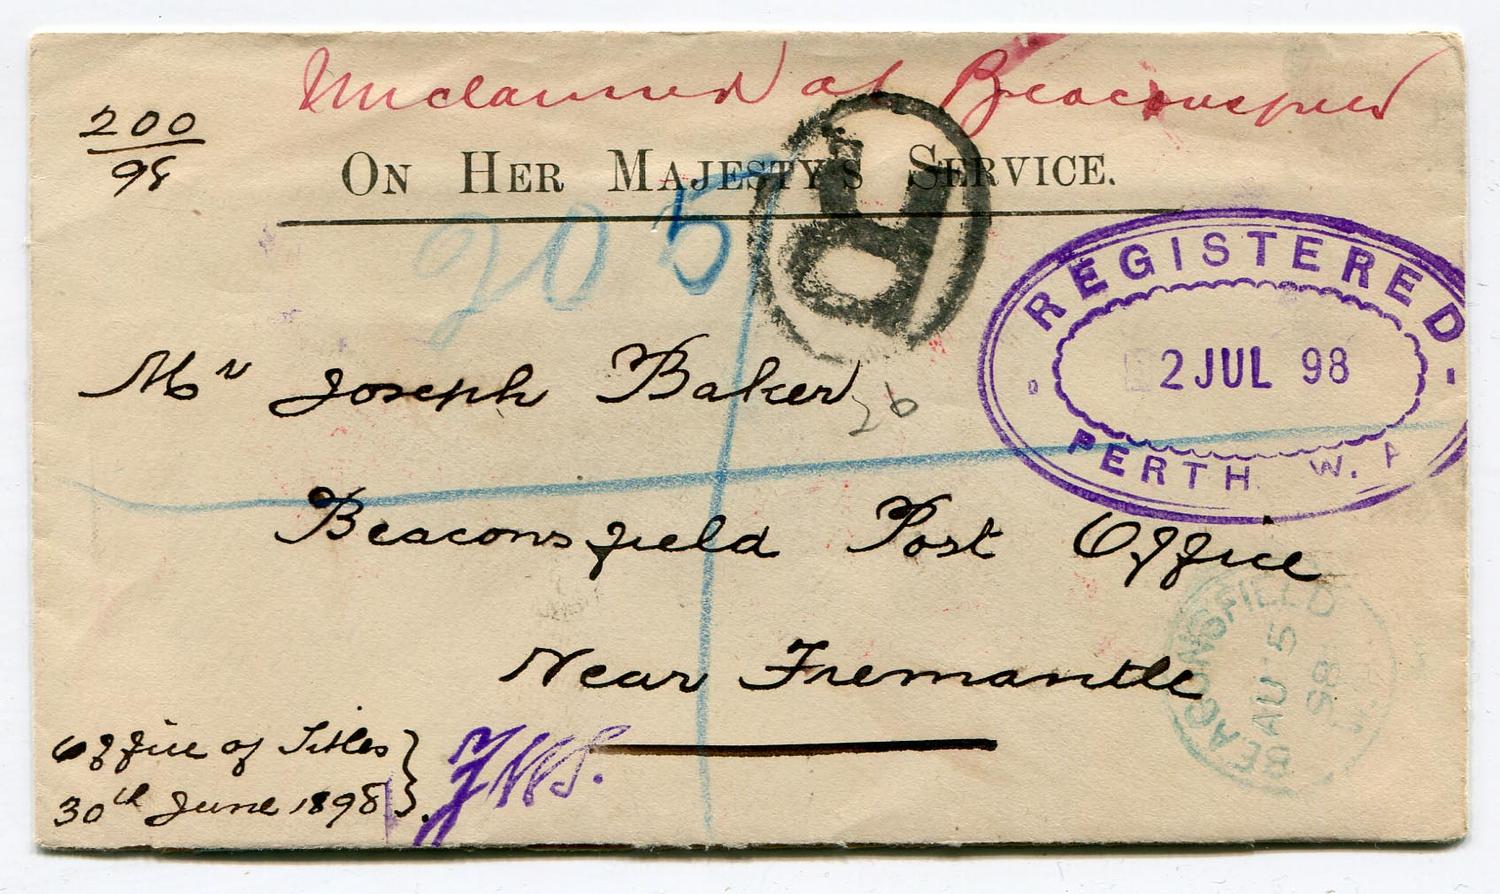 Unclaimed at Beaconsfield
200
98
ON HER MAJESTY'S SERVICE.
R
205
REGISTERED
2 JUL 98
PERTH W. A
Mr Joseph Baker
26
Beaconsfield Post Office
Near Fremantle
BEACONSFIELD
AU 5
98
Office of Titles
30th June 1898